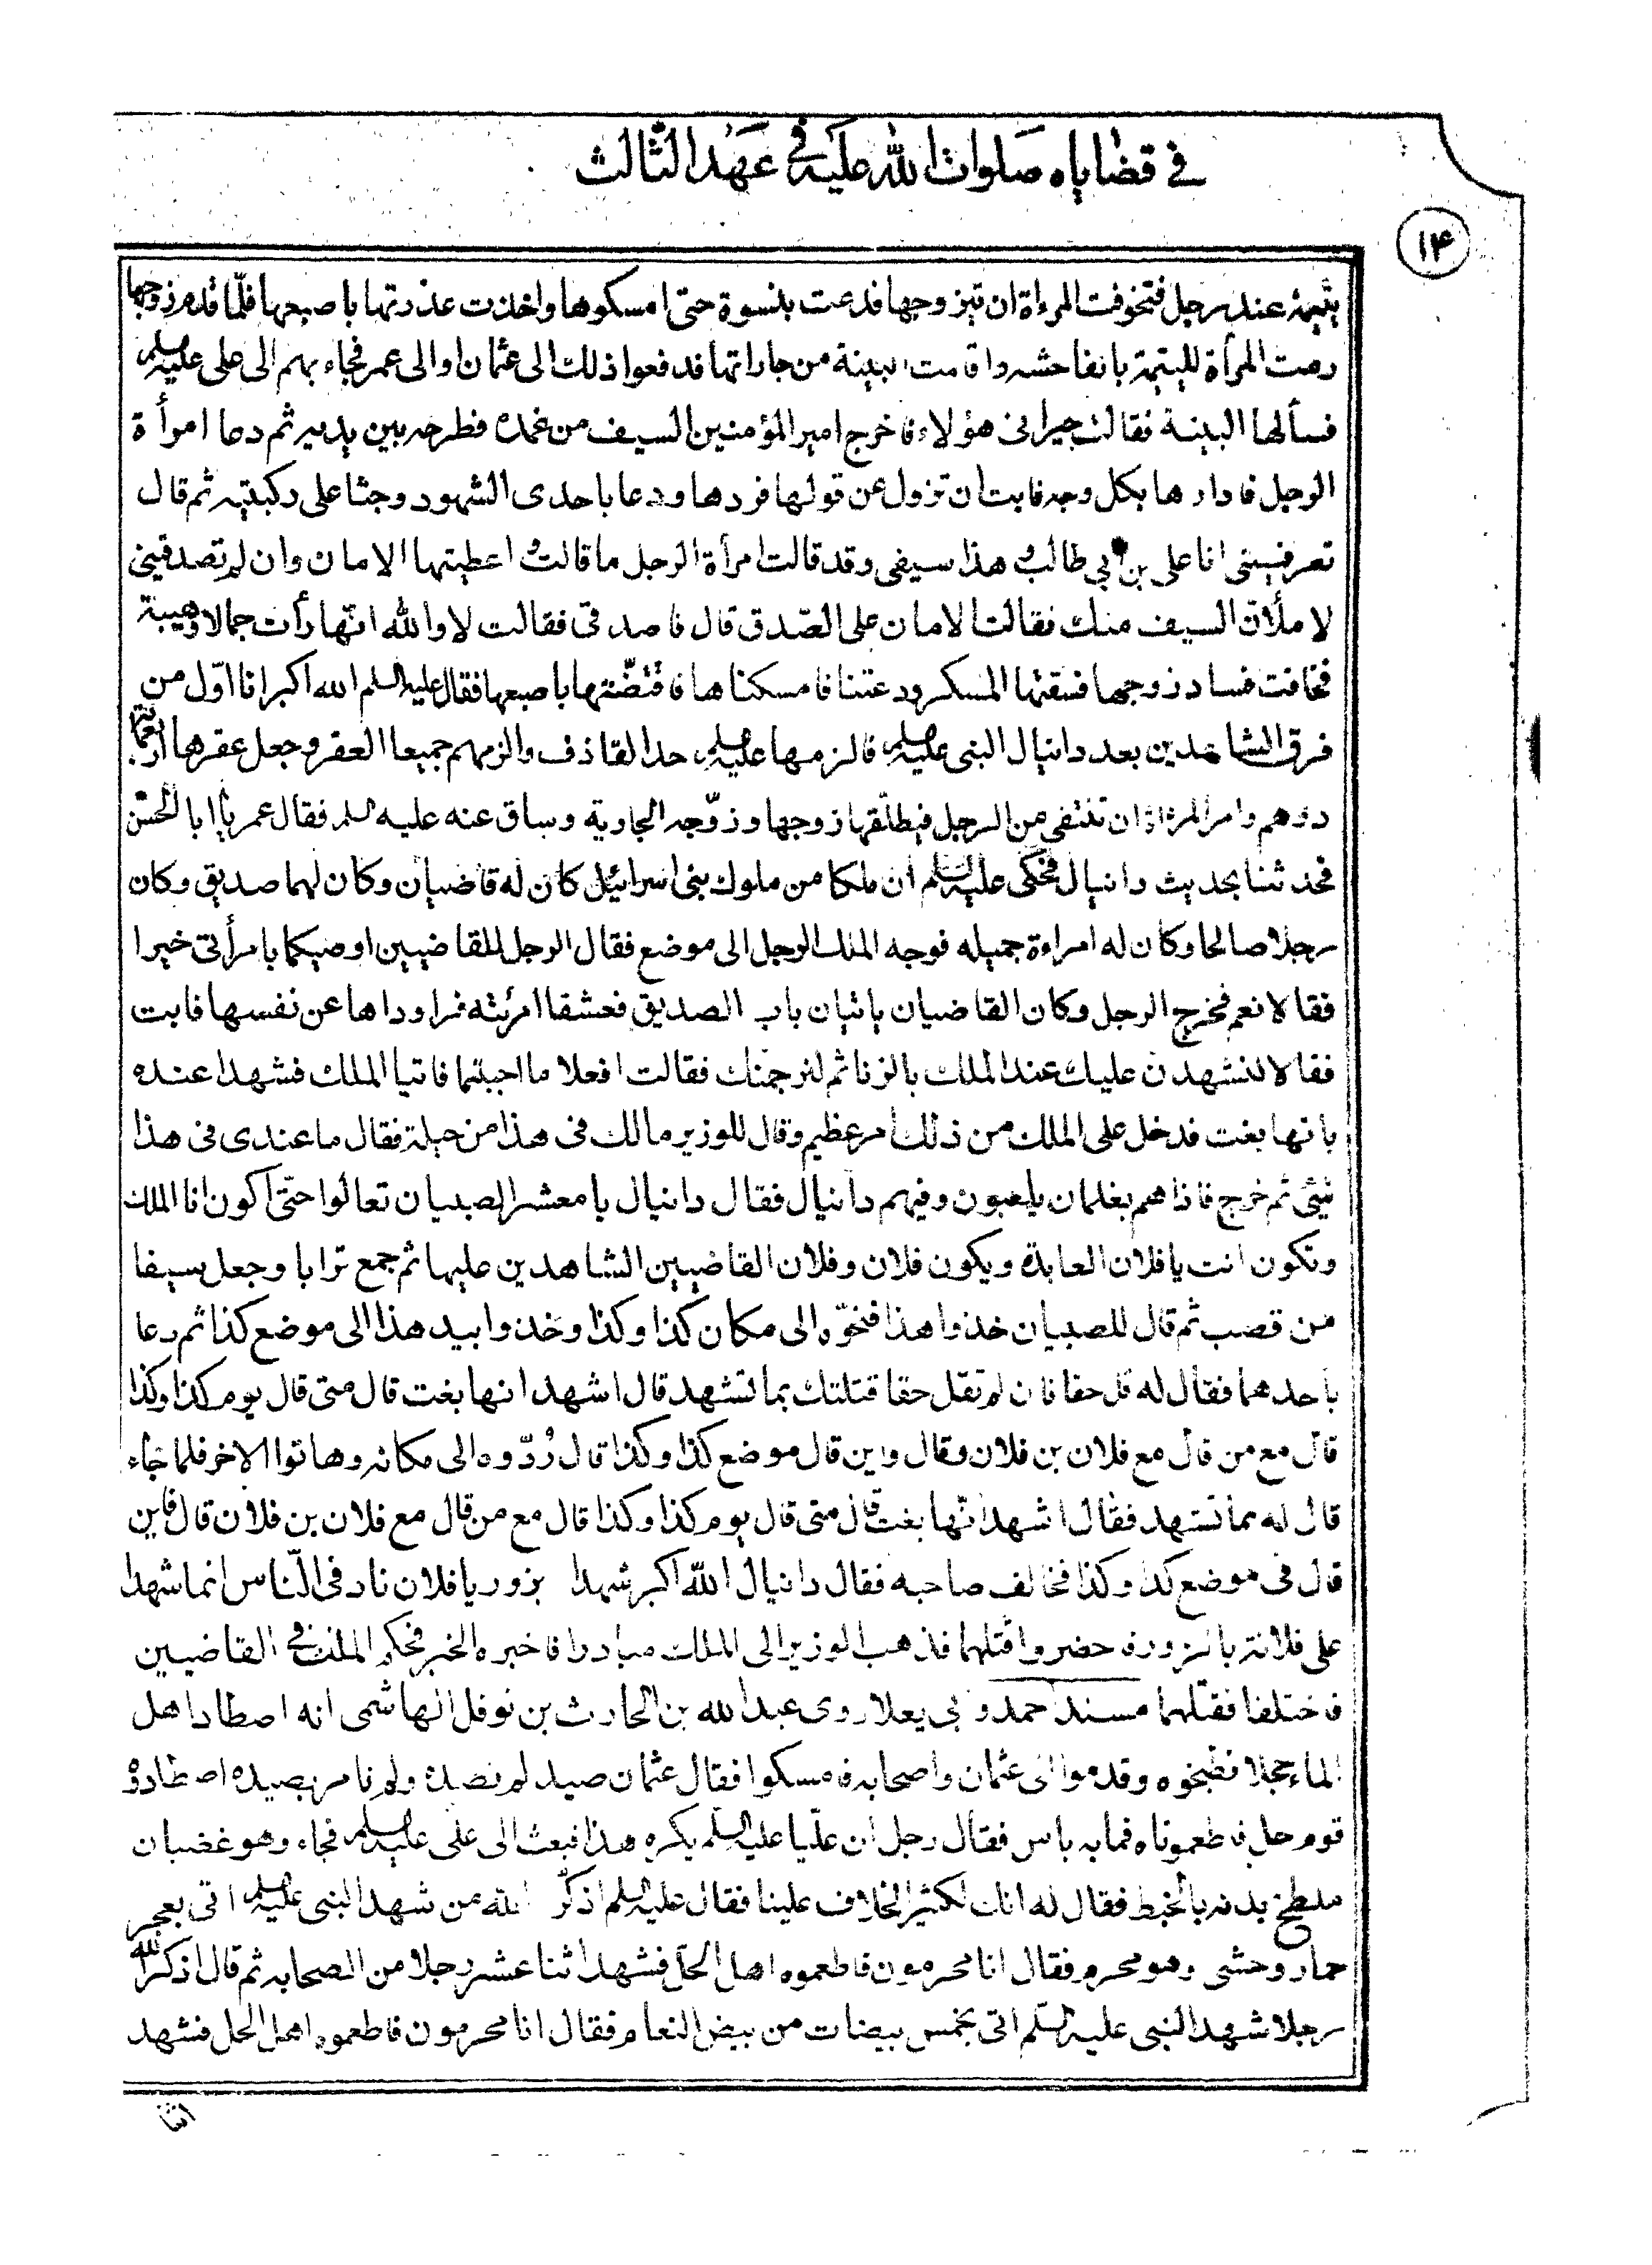 في قضاياه صلوات الله عليه في عهد الثالث
١٤
يتيمة عند رجل فتخوفت المرءاة ان تيزوجها فدعت بنسوة حتى امسكوها واخذت عذرتها باصبعها فلمّا قدم زوجها
رمت المرأة لليتيمة بالفاحشه واقامت البينة من جاراتها فدفعوا ذلك الى عثمان او الى عمر فجاء بهم الى على عليه السلم
فسألها البينة فقالت جيرانى هؤلاء فاخرج امير المؤمنين السيف من غمده فطرحه بين يديه ثم دعا امرأة
الرجل فادارها بكل وجه فابت ان تزول عن قولها فردها ودعا باحدى الشهود وجثا على ركبتيه ثم قال
تعرفيننى انا على بن ابي طالب وهذا سيفى وقد قالت امرأة الرجل ما قالت و اعطيتها الامان وان لم تصدقينى
لاملأن السيف منك فقالت الامان على الصّدق قال فاصدقى فقالت لا والله انّها رأت جمالا وهيبة
فخافت فساد زوجها فسقتها المسكر ودعتنا فامسكناها فافتضّتها باصبعها فقال عليه السلم الله اكبر انا اوّل من
فرق الشاهدين بعد دانيال النبى عليه السلم فالزمها عليه السلم حد القاذف والزمهم جميعا العقر وجعل عقرها اربعمائة
درهم وامر المرءاة ان تنتفى من الرجل فيطلّقها زوجها وزوّجه الجارية وساق عنه عليه السلم فقال عمر يا ابا الحسن
فحدثنا بحديث دانيال فحكى عليه السلم ان ملكا من ملوك بنى اسرائيل كان له قاضيان وكان لهما صديق وكان
رجلا صالحا وكان له امراءة جميله فوجه الملك الرجل الى موضع فقال الرجل للقاضيين اوصيكما بامرأتى خيرا
فقالا نعم فخرج الرجل وكان القاضيان ياتيان باب الصديق فعشقا امرئته فراوداها عن نفسها فابت
فقالا لنشهدن عليك عند الملك بالزنا ثم لنرجمنك فقالت افعلا ما احببتما فاتيا الملك فشهدا عنده
بانها بغت فدخل على الملك من ذلك امر عظيم وقال للوزير مالك فى هذا من حيلة فقال ما عندى فى هذا
شيئ ثم خرج فاذا هم بغلمان يلعبون وفيهم دانيال فقال دانيال يا معشر الصبيان تعالوا حتّى اكون انا الملك
وتكون انت يا فلان العابدة ويكون فلان وفلان القاضيين الشاهدين عليها ثم جمع ترابا وجعل سيفا
من قصب ثم قال للصبيان خذوا هذا فنحّوه الى مكان كذا وكذا وخذوا بيد هذا الى موضع كذا ثم دعا
باحدهما فقال له قل حقا فان لم تقل حقا قتلتك بما تشهد قال اشهد انها بغت قال متى قال يوم كذا وكذا
قال مع من قال مع فلان بن فلان وقال واين قال موضع كذا وكذا قال رُدّوه الى مكانه وهاتوا الاخر فلما جاء
قال له بما تشهد فقال اشهد انّها بغت قال متى قال يوم كذا وكذا قال مع من قال مع فلان بن فلان قال فاين
قال فى موضع كذا وكذا فخالف صاحبه فقال دانيال اللّه اكبر شهدا بزور يا فلان ناد فى النّاس انما شهدا
على فلانة بالزور فاحضروا قتلهما فذهب الوزير الى الملك مبادرا فاخبره الخبر فحكم الملك في القاضيين
فاختلفا فقتلهما مسند احمد وابي يعلا روى عبد الله بن الحارث بن نوفل الهاشمى انه اصطاد اهل
الماء حجلا فطبخوه وقدموا الى عثمان واصحابه فامسكوا فقال عثمان صيد لم نصده ولم نامر بصيده اصطادوه
قوم حل فاطعموناه فما به باس فقال رجل ان عليّا عليه السلم يكره هذا فبعث الى على عليه السلم فجاء وهو غضبان
ملطخ يديه بالخبط فقال له انك لكثير الخلاف علينا فقال عليه السلم اذكّر الله من شهد النبى عليه السلم اتى بعجز
حمار وحشى وهو محرم فقال انا محرمون فاطعموه اهل الحلّ فشهد اثنا عشر رجلا من الصحابه ثم قال اذكر الله
رجلا شهد النبى عليه السّلم اتى بخمس بيضات من بيض النعام فقال انا محرمون فاطعموه اهل الحل فشهد
اثنا